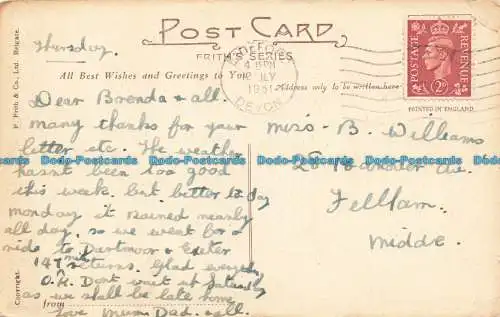 POST CARD
FRITH'S SERIES
Thursday.
All Best Wishes and Greetings to You
Address only to be written here
4 15 PM
JLY
1951
DEVON
POSTAGE
REVENUE
2D
PRINTED IN ENGLAND.
F. Frith & Co., Ltd. Reigate.
Copyright.
Dear Brenda & all.
many thanks for your
letter etc. The weather
hasnt been too good
this week. but better to day
monday it rained nearly
all day, so we went for a
ride to Dartmoor & Exeter
returns. Glad everybody
O.K. Dont wait up Saturday
as we shall be late home
from
love Mum Dad & all.
Miss B. Williams
Ave.
Feltham.
Middx.
Bodo-Postcards Bodo-Postcards Bodo-Postcards